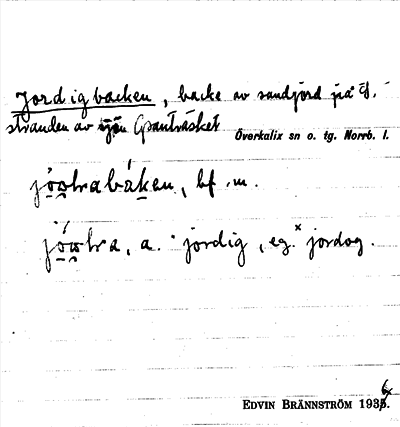 Jordigbacken, backe av sandjord på S.
stranden av sjön Granträsket
Överkalix sn o. tg. Norrb. l.
bf. m.
a. "jordig, eg. ˣjordog.
EDVIN BRÄNNSTRÖM 1936.